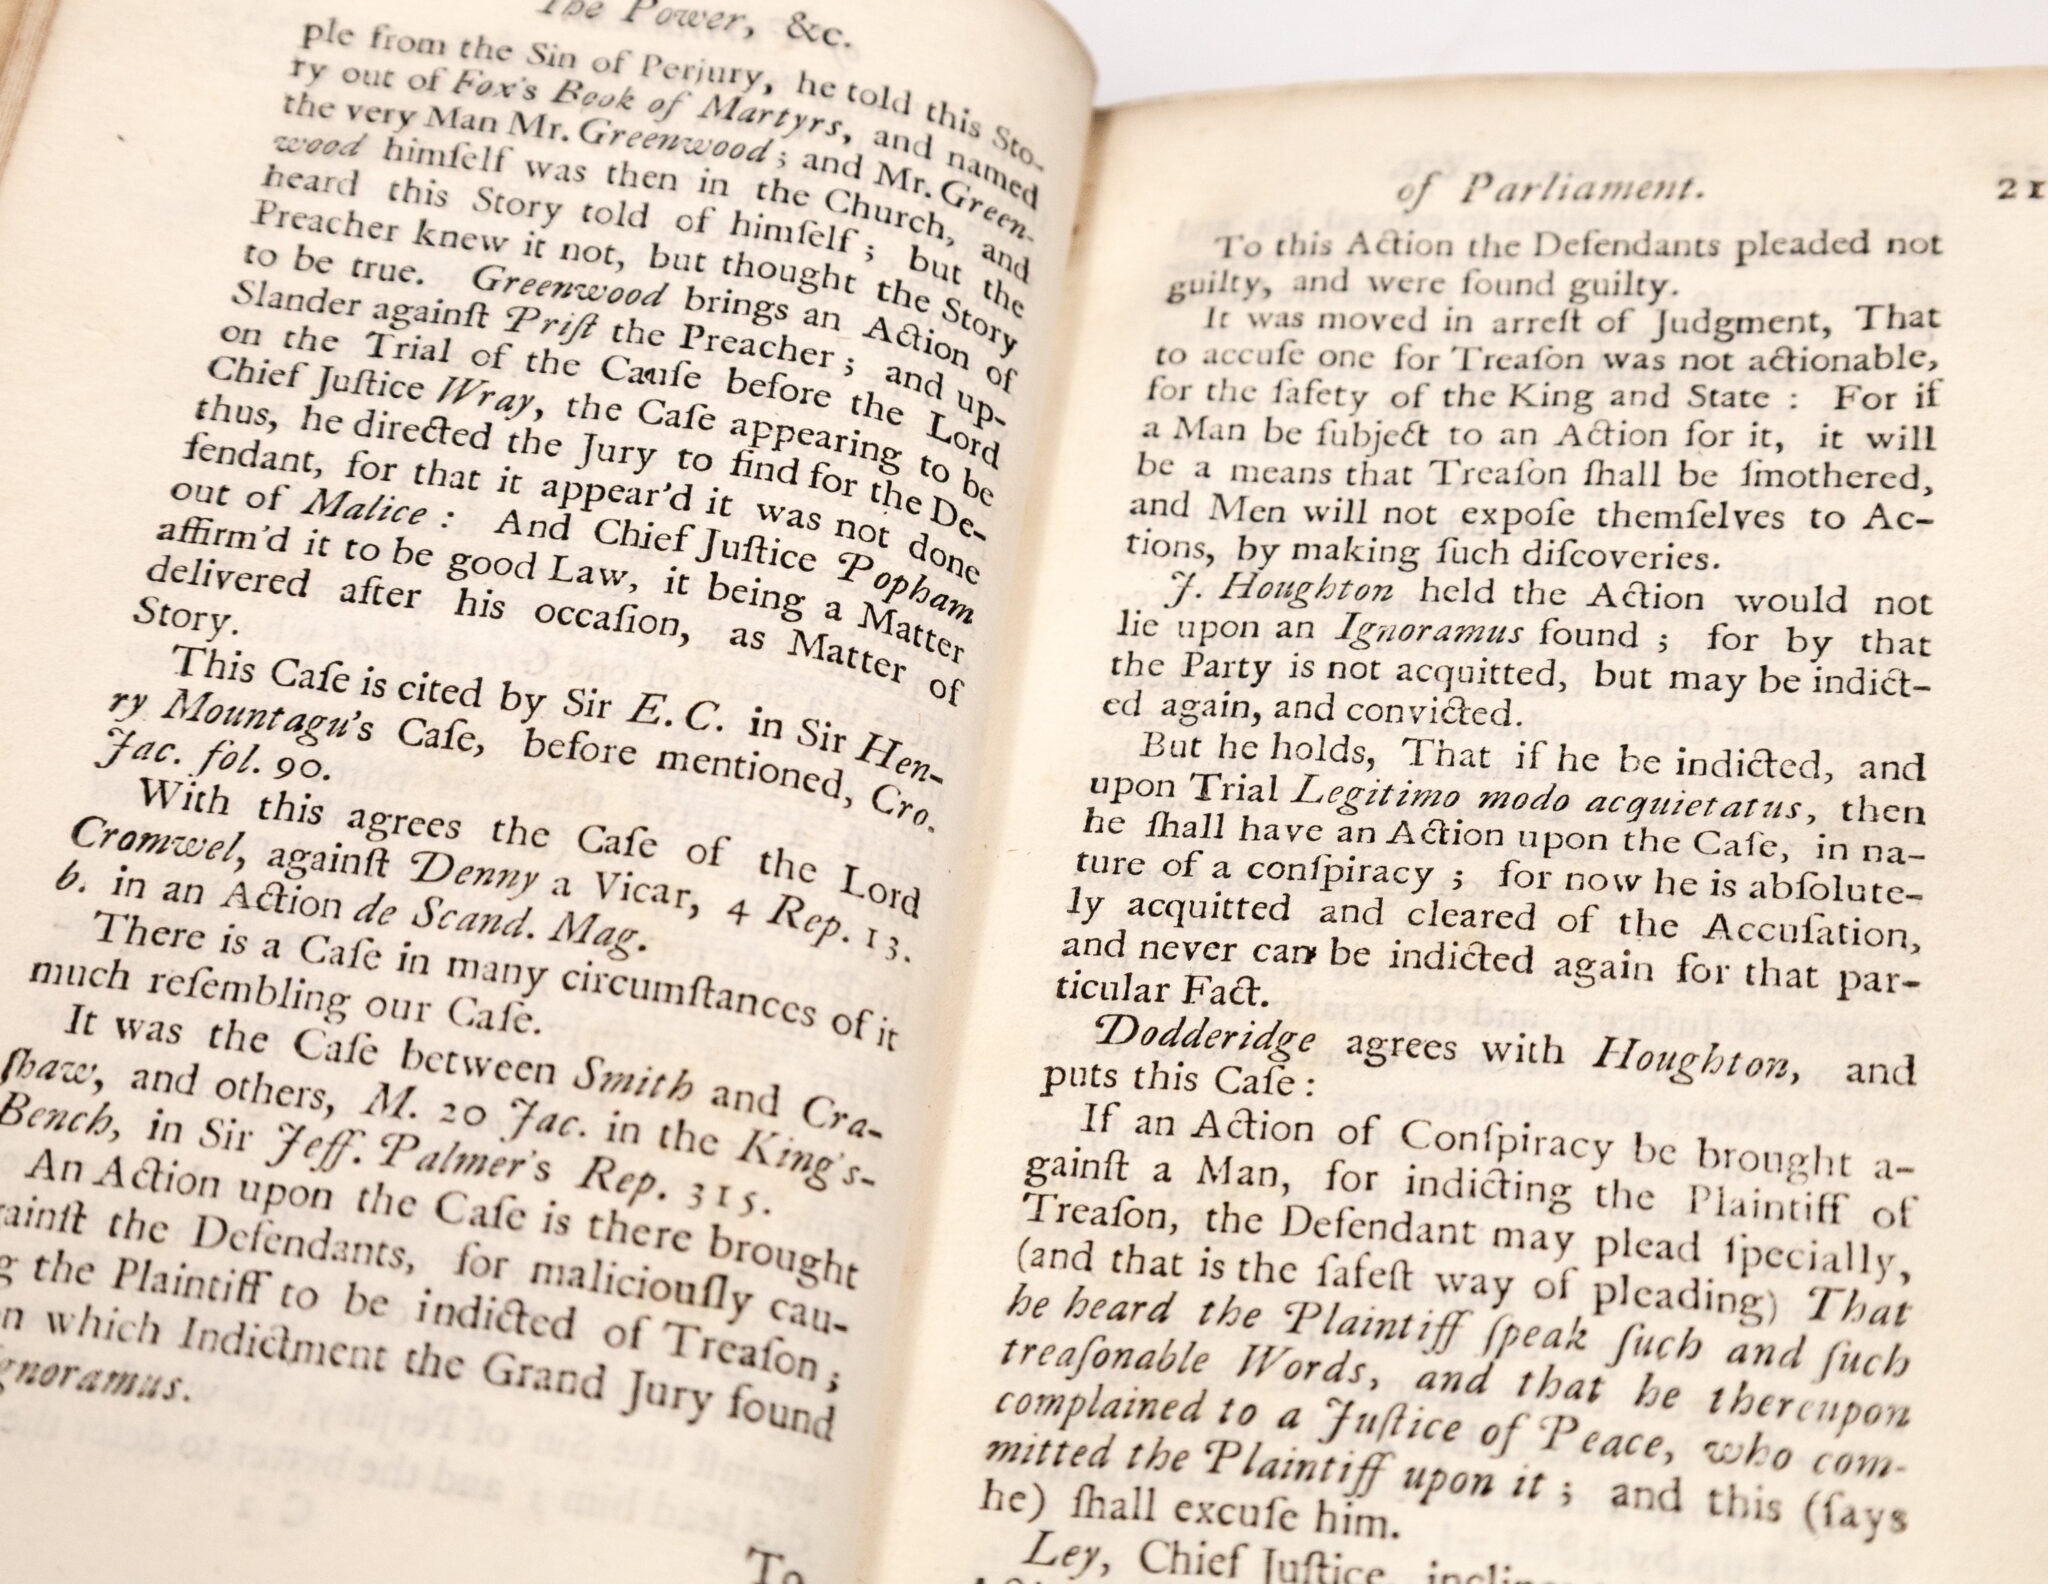 The Power, &c.
ple from the Sin of Perjury, he told this Sto-
ry out of Fox's Book of Martyrs, and named
the very Man Mr. Greenwood; and Mr. Green-
wood himſelf was then in the Church, and
heard this Story told of himſelf; but the
Preacher knew it not, but thought the Story
to be true. Greenwood brings an Action of
Slander againſt Priſt the Preacher; and up-
on the Trial of the Cauſe before the Lord
Chief Juſtice Wray, the Caſe appearing to be
thus, he directed the Jury to find for the De-
fendant, for that it appear'd it was not done
out of Malice: And Chief Juſtice Popham
affirm'd it to be good Law, it being a Matter
delivered after his occaſion, as Matter of
Story.
This Caſe is cited by Sir E. C. in Sir Hen-
ry Mountagu's Caſe, before mentioned, Cro.
Jac. fol. 90.
With this agrees the Caſe of the Lord
Cromwel, againſt Denny a Vicar, 4 Rep. 13.
b. in an Action de Scand. Mag.
There is a Caſe in many circumſtances of it
much reſembling our Caſe.
It was the Caſe between Smith and Cra-
ſhaw, and others, M. 20 Jac. in the King's-
Bench, in Sir Jeff. Palmer's Rep. 315.
An Action upon the Caſe is there brought
gainſt the Defendants, for maliciouſly cau-
g the Plaintiff to be indicted of Treaſon;
n which Indictment the Grand Jury found
gnoramus.
To
of Parliament. 21
To this Action the Defendants pleaded not
guilty, and were found guilty.
It was moved in arreſt of Judgment, That
to accuſe one for Treaſon was not actionable,
for the ſafety of the King and State: For if
a Man be ſubject to an Action for it, it will
be a means that Treaſon ſhall be ſmothered,
and Men will not expoſe themſelves to Ac-
tions, by making ſuch diſcoveries.
J. Houghton held the Action would not
lie upon an Ignoramus found; for by that
the Party is not acquitted, but may be indict-
ed again, and convicted.
But he holds, That if he be indicted, and
upon Trial Legitimo modo acquietatus, then
he ſhall have an Action upon the Caſe, in na-
ture of a conſpiracy; for now he is abſolute-
ly acquitted and cleared of the Accuſation,
and never can be indicted again for that par-
ticular Fact.
Dodderidge agrees with Houghton, and
puts this Caſe:
If an Action of Conſpiracy be brought a-
gainſt a Man, for indicting the Plaintiff of
Treaſon, the Defendant may plead ſpecially,
(and that is the ſafeſt way of pleading) That
he heard the Plaintiff ſpeak ſuch and ſuch
treaſonable Words, and that he thereupon
complained to a Juſtice of Peace, who com-
mitted the Plaintiff upon it; and this (ſays
he) ſhall excuſe him.
Ley, Chief Juſtice,